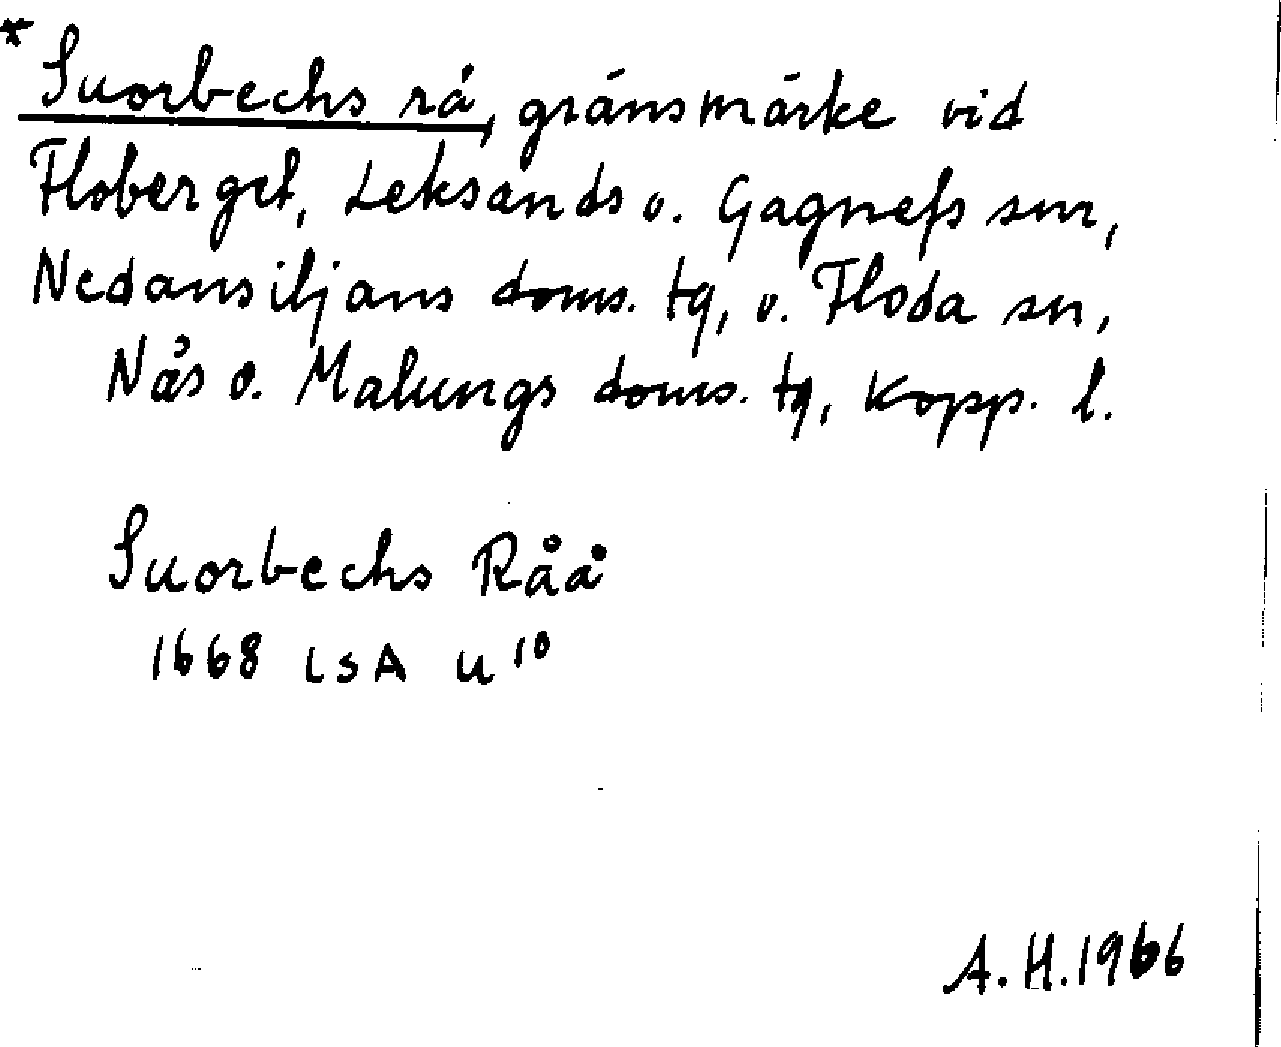 * Suorbechs rå, gränsmärke vid
Floberget, Leksands o. Gagnefs snr,
Nedansiljans doms. tg, o. Floda sn,
Nås o. Malungs doms. tg, Kopp. l.
Suorbechs Råå
1668 LSA U 10
A.H. 1966